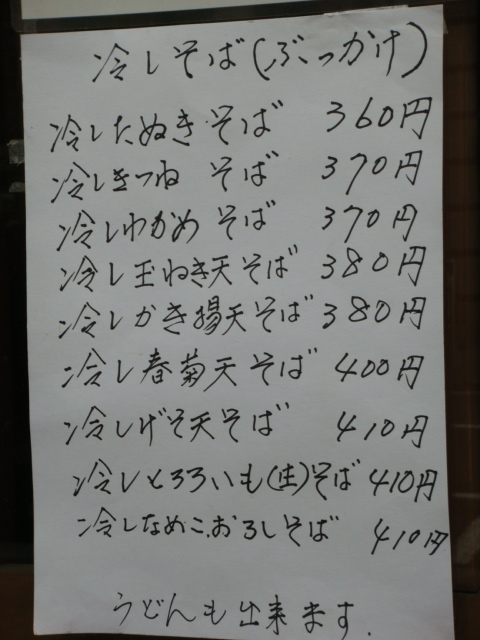 冷しそば(ぶっかけ)
冷したぬきそば 360円
冷しきつねそば 370円
冷しわかめそば 370円
冷し玉ねぎ天そば 380円
冷しかき揚天そば 380円
冷し春菊天そば 400円
冷しげそ天そば 410円
冷しとろろいも(生)そば 410円
冷しなめこ.おろしそば 410円
うどんも出来ます.